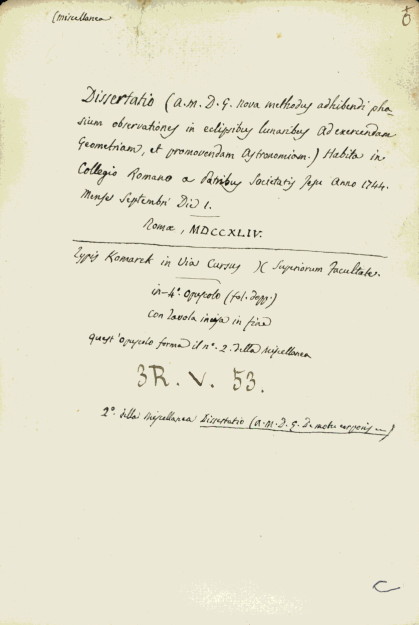 (miscellanea
Dissertatio (a. M. D. G. nova methodus adhibendi pha-
sium observationes in eclipsibus lunaribus ad exercendam
Geometriam, et promovendam Astronomiam.) Habita in
Collegio Romano a Patribus Societatis Jesu Anno 1744.
Mense Septembr' Die 1.
Romæ, MDCCXLIV.
Typis Komarek in Via Cursus )( Superiorum Facultate.
in-4°. Opuscolo (fol. dopp.)
con tavola incisa in fine
quest'opuscolo forma il n°. 2. della miscellanea
3R. V. 53.
2°. della miscellanea Dissertatio (a. M. D. G. De motu corporis —)